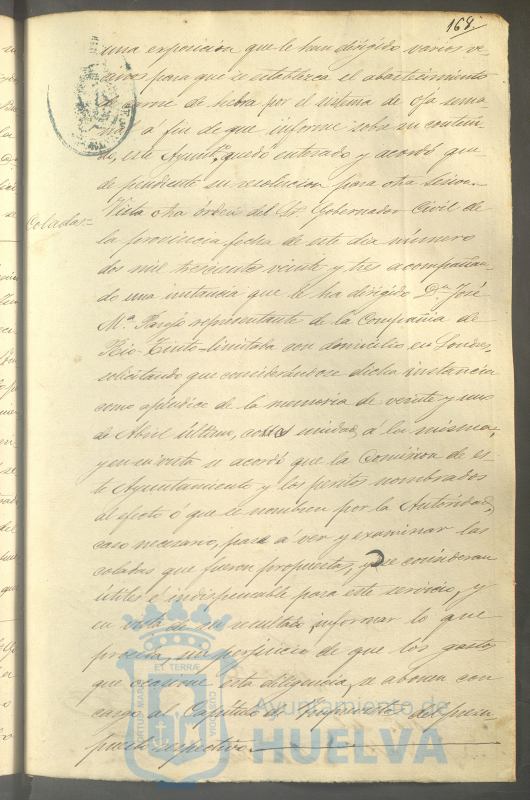 168.
una exposicion que le han dirijido varios ve-
cinos para que se establezca el abastecimiento
de carne de hebra por el sistema de oja una
a fin de que informe sobre su conteni-
do, este Ayuntº quedó enterado y acordó que-
de pendiente su resolucion para otra sesion.
Coladas=
Vista otra órden del Sr. Gobernador Civil de
la provincia fecha de este dia número
dos mil trescientos veinte y tres acompañan-
do una instancia que le ha dirigido Dn. José
Mª representante de la Compañia de
Rio-Tinto-limitada con domicilio en Londres,
solicitando que considerándose dicha instancia
como apéndice de la memoria de veinte y uno
de Abril último, unidad á la misma,
y en su vista se acordó que la Comision de es-
te Ayuntamiento y los peritos nombrados
al efecto ó que se nombren por la Autoridad,
caso necesario, pase á ver y examinar las
coladas que fueron propuestas, y se consideran
útiles é indispensable para este servicio, y
en vista de su resultado informar lo que
proceda, sin perjuicio de que los gastos
que ocasione esta diligencia, se abonen con
cargo al Capítulo de Imprevistos del presu-
puesto respectivo.
PORTUS MARIS
ET TERRÆ
CUSTODIA
Ayuntamiento de
HUELVA